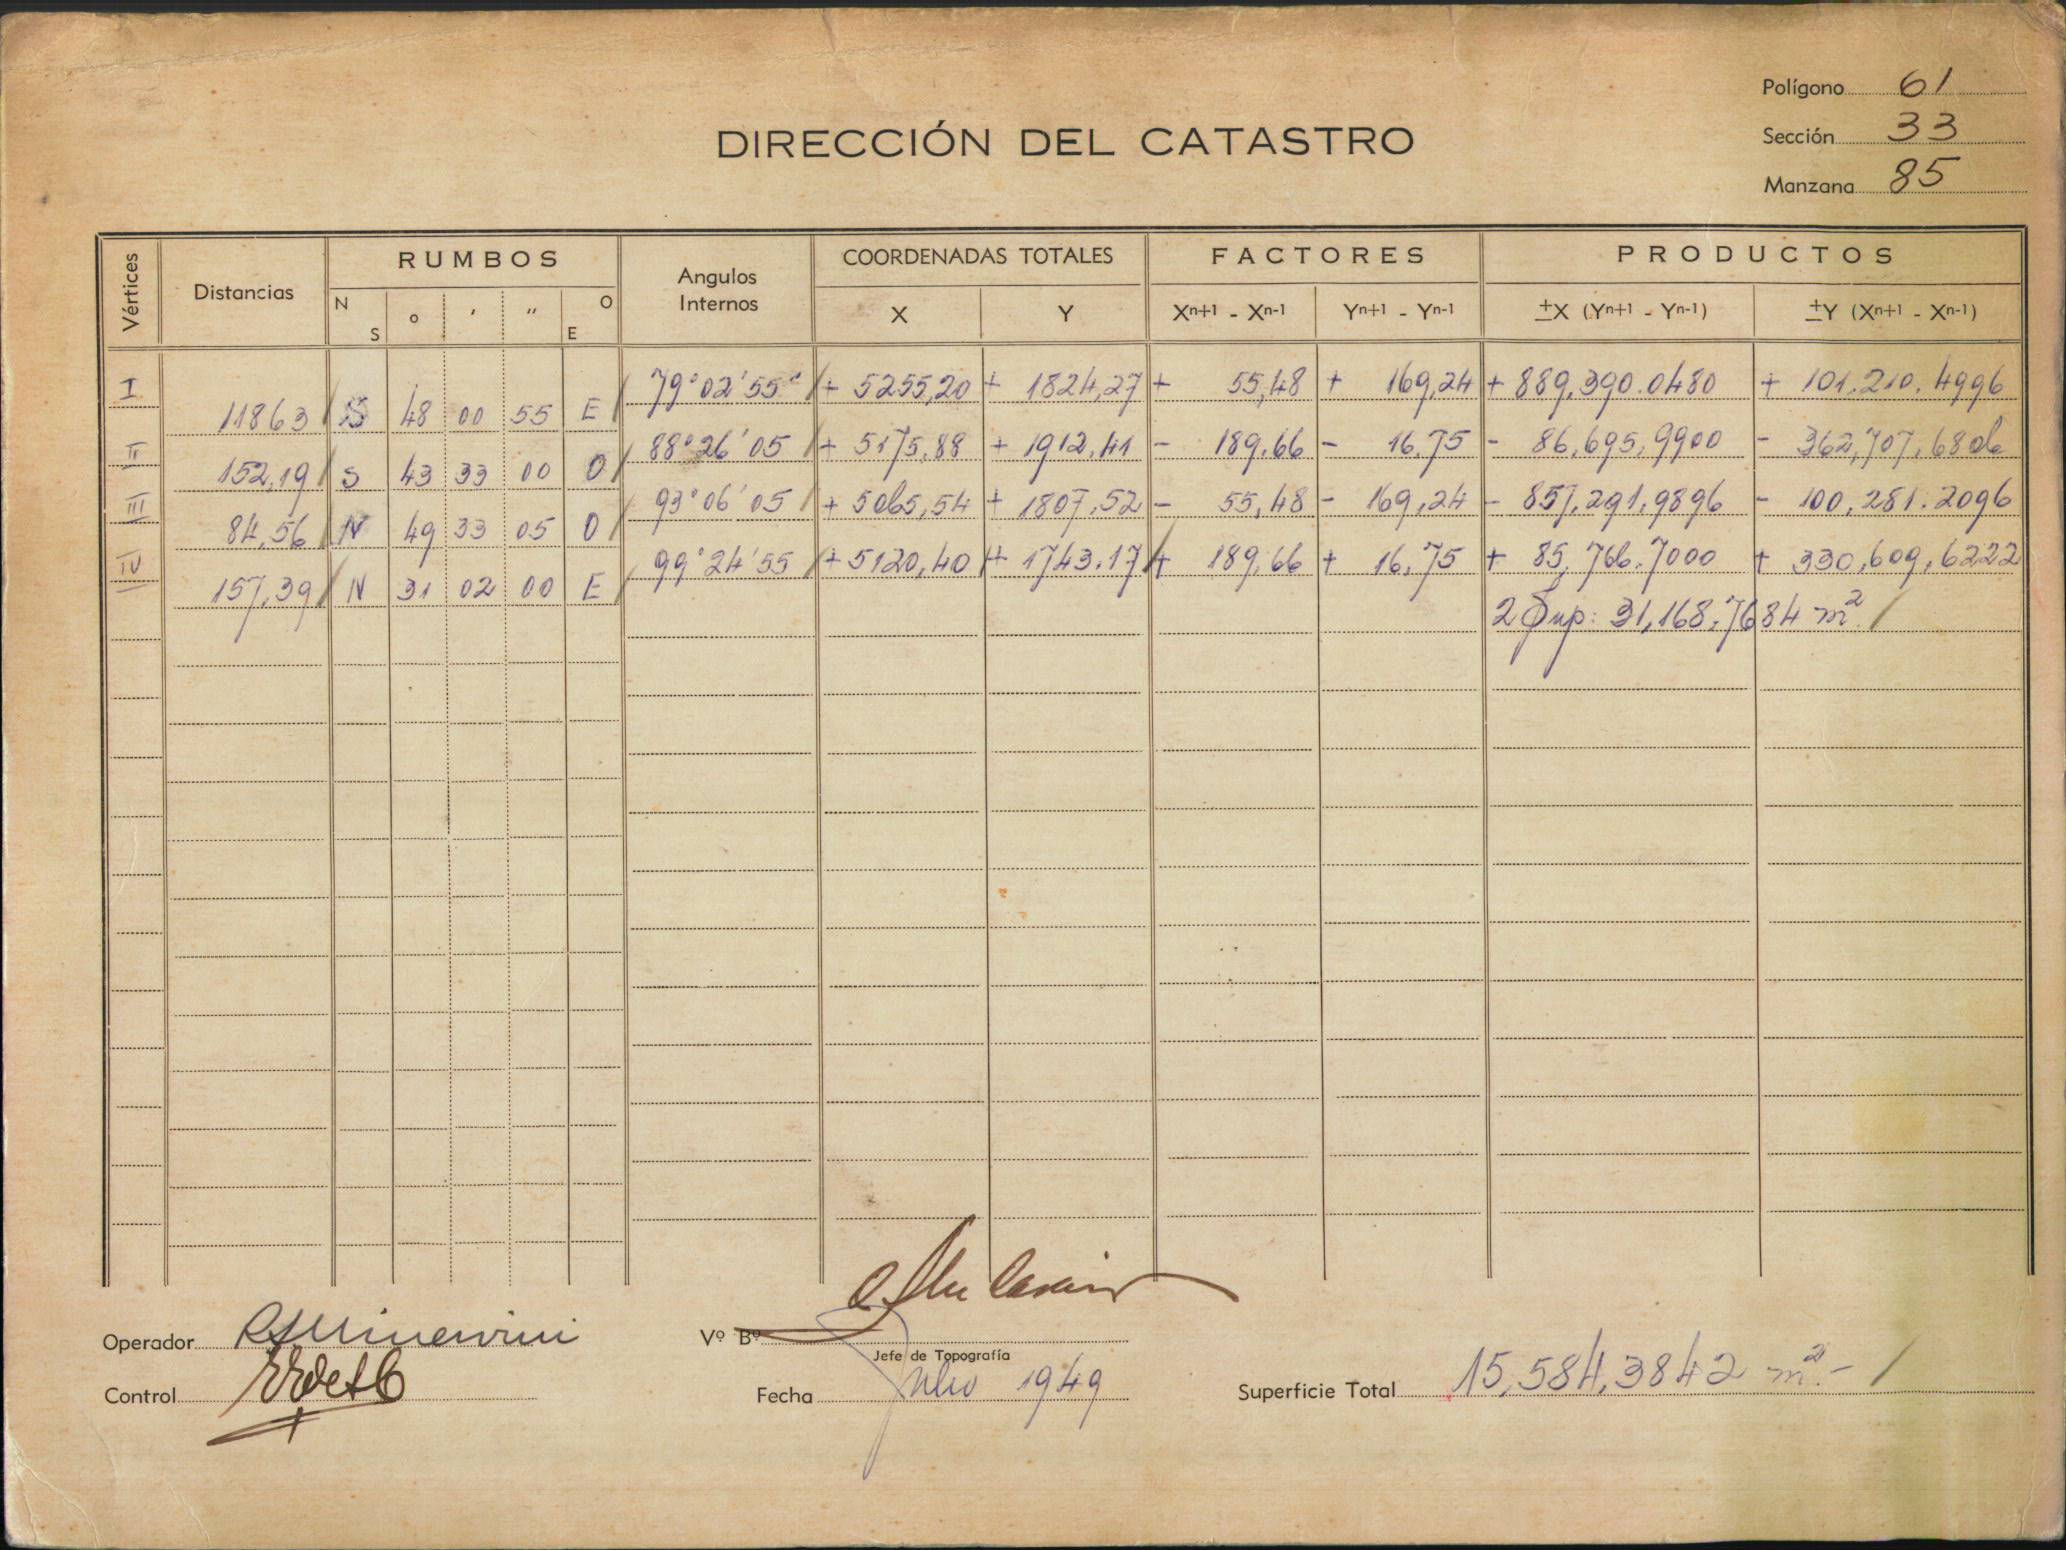 Polígono 61
Sección 33
Manzana 85
DIRECCIÓN DEL CATASTRO
Vértices Distancias RUMBOS Angulos Internos COORDENADAS TOTALES FACTORES PRODUCTOS
N S o ' " O E X Y Xn+1 - Xn-1 Yn+1 - Yn-1 ±X (Yn+1 - Yn-1) ±Y (Xn+1 - Xn-1)
I 79°02'55" + 5255,20 + 1824,27 + 55,48 + 169,24 + 889,390.0480 + 101.210.4996
11863 S 48 00 55 E
II 88°26'05 + 5175,88 + 1912,41 - 189,66 - 16,75 - 86,695,9900 - 362,707,6806
152,19 S 43 33 00 O
III 93°06'05 + 5065,54 + 1807,52 - 55,48 - 169,24 - 857,291,9896 - 100,281.2096
84,56 N 49 33 05 O
IV 99°24'55 + 5120,40 + 1743.17 + 189,66 + 16,75 + 85,766.7000 + 330,609,6222
157,39 N 31 02 00 E
2 Sup: 31,168.7684 m²
Operador R Minervini
Control
Vº Bº
Jefe de Topografía
Fecha Julio 1949
Superficie Total 15,584,3842 m².-